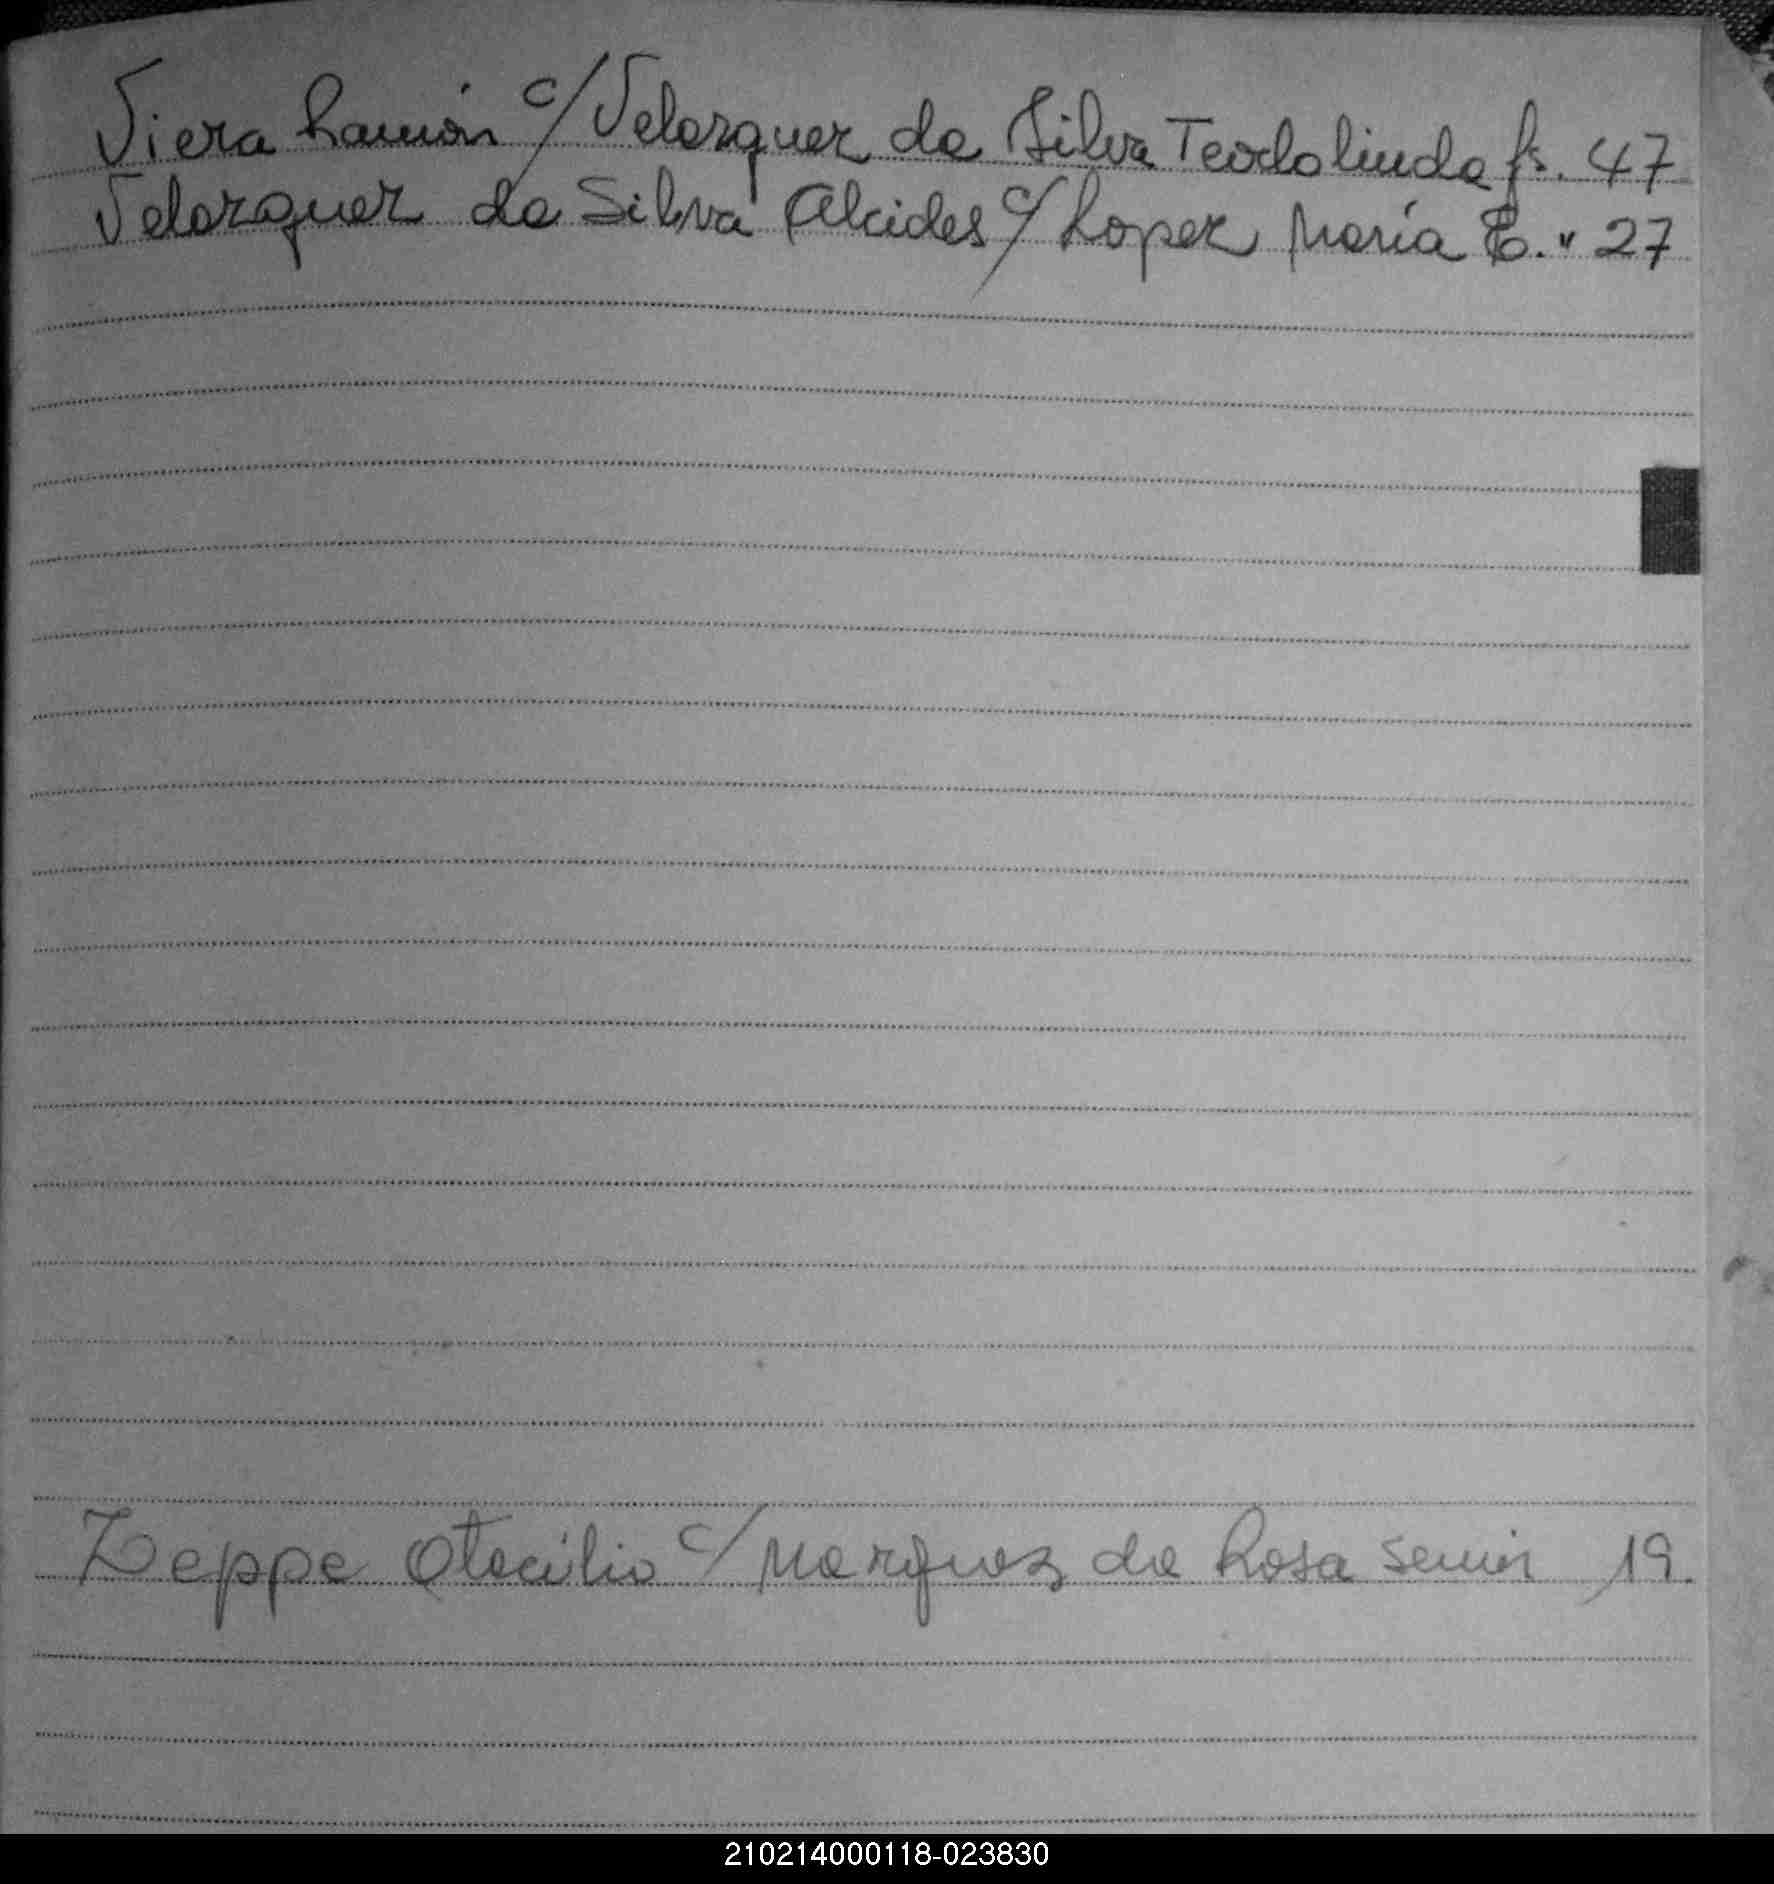 Viera Ramón c/ Velazquez da Silva Teodolinda fs. 47
Velazquez da Silva Alcides c/ Lopez María E. " 27
Zeppe Otacilio c/ Marquez da Rosa 19.
210214000118-023830